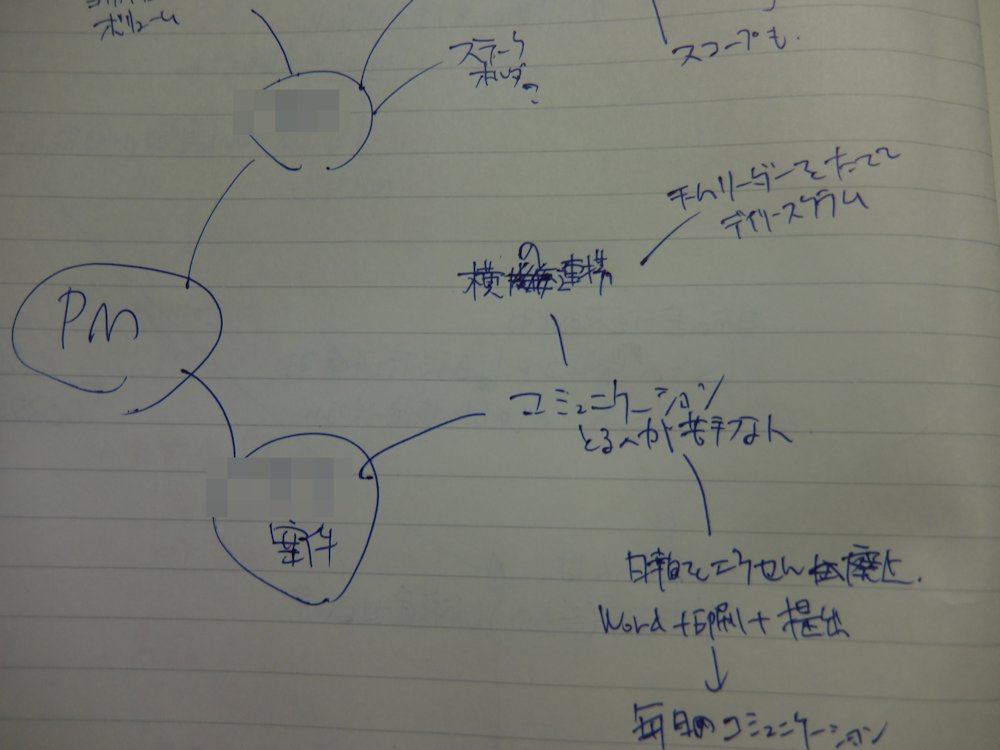 ボリューム
ステーク
ホルダ?
スコープも.
チームリーダーをたてて
デイリースクラム
横の連携
PM
コミュニケーション
とるのが苦手な人
案件
日報をこうせん 廃止.
Word+印刷+提出
↓
毎日のコミュニケーション